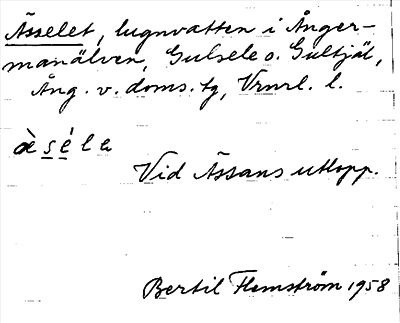 Ässelet, lugnvatten i Ånger-
manälven, Gulsele o. Gultjäl,
Ång. v. doms. tg, Vrnrl. l.
Vid Ässans utlopp.
Bertil Flemström 1958